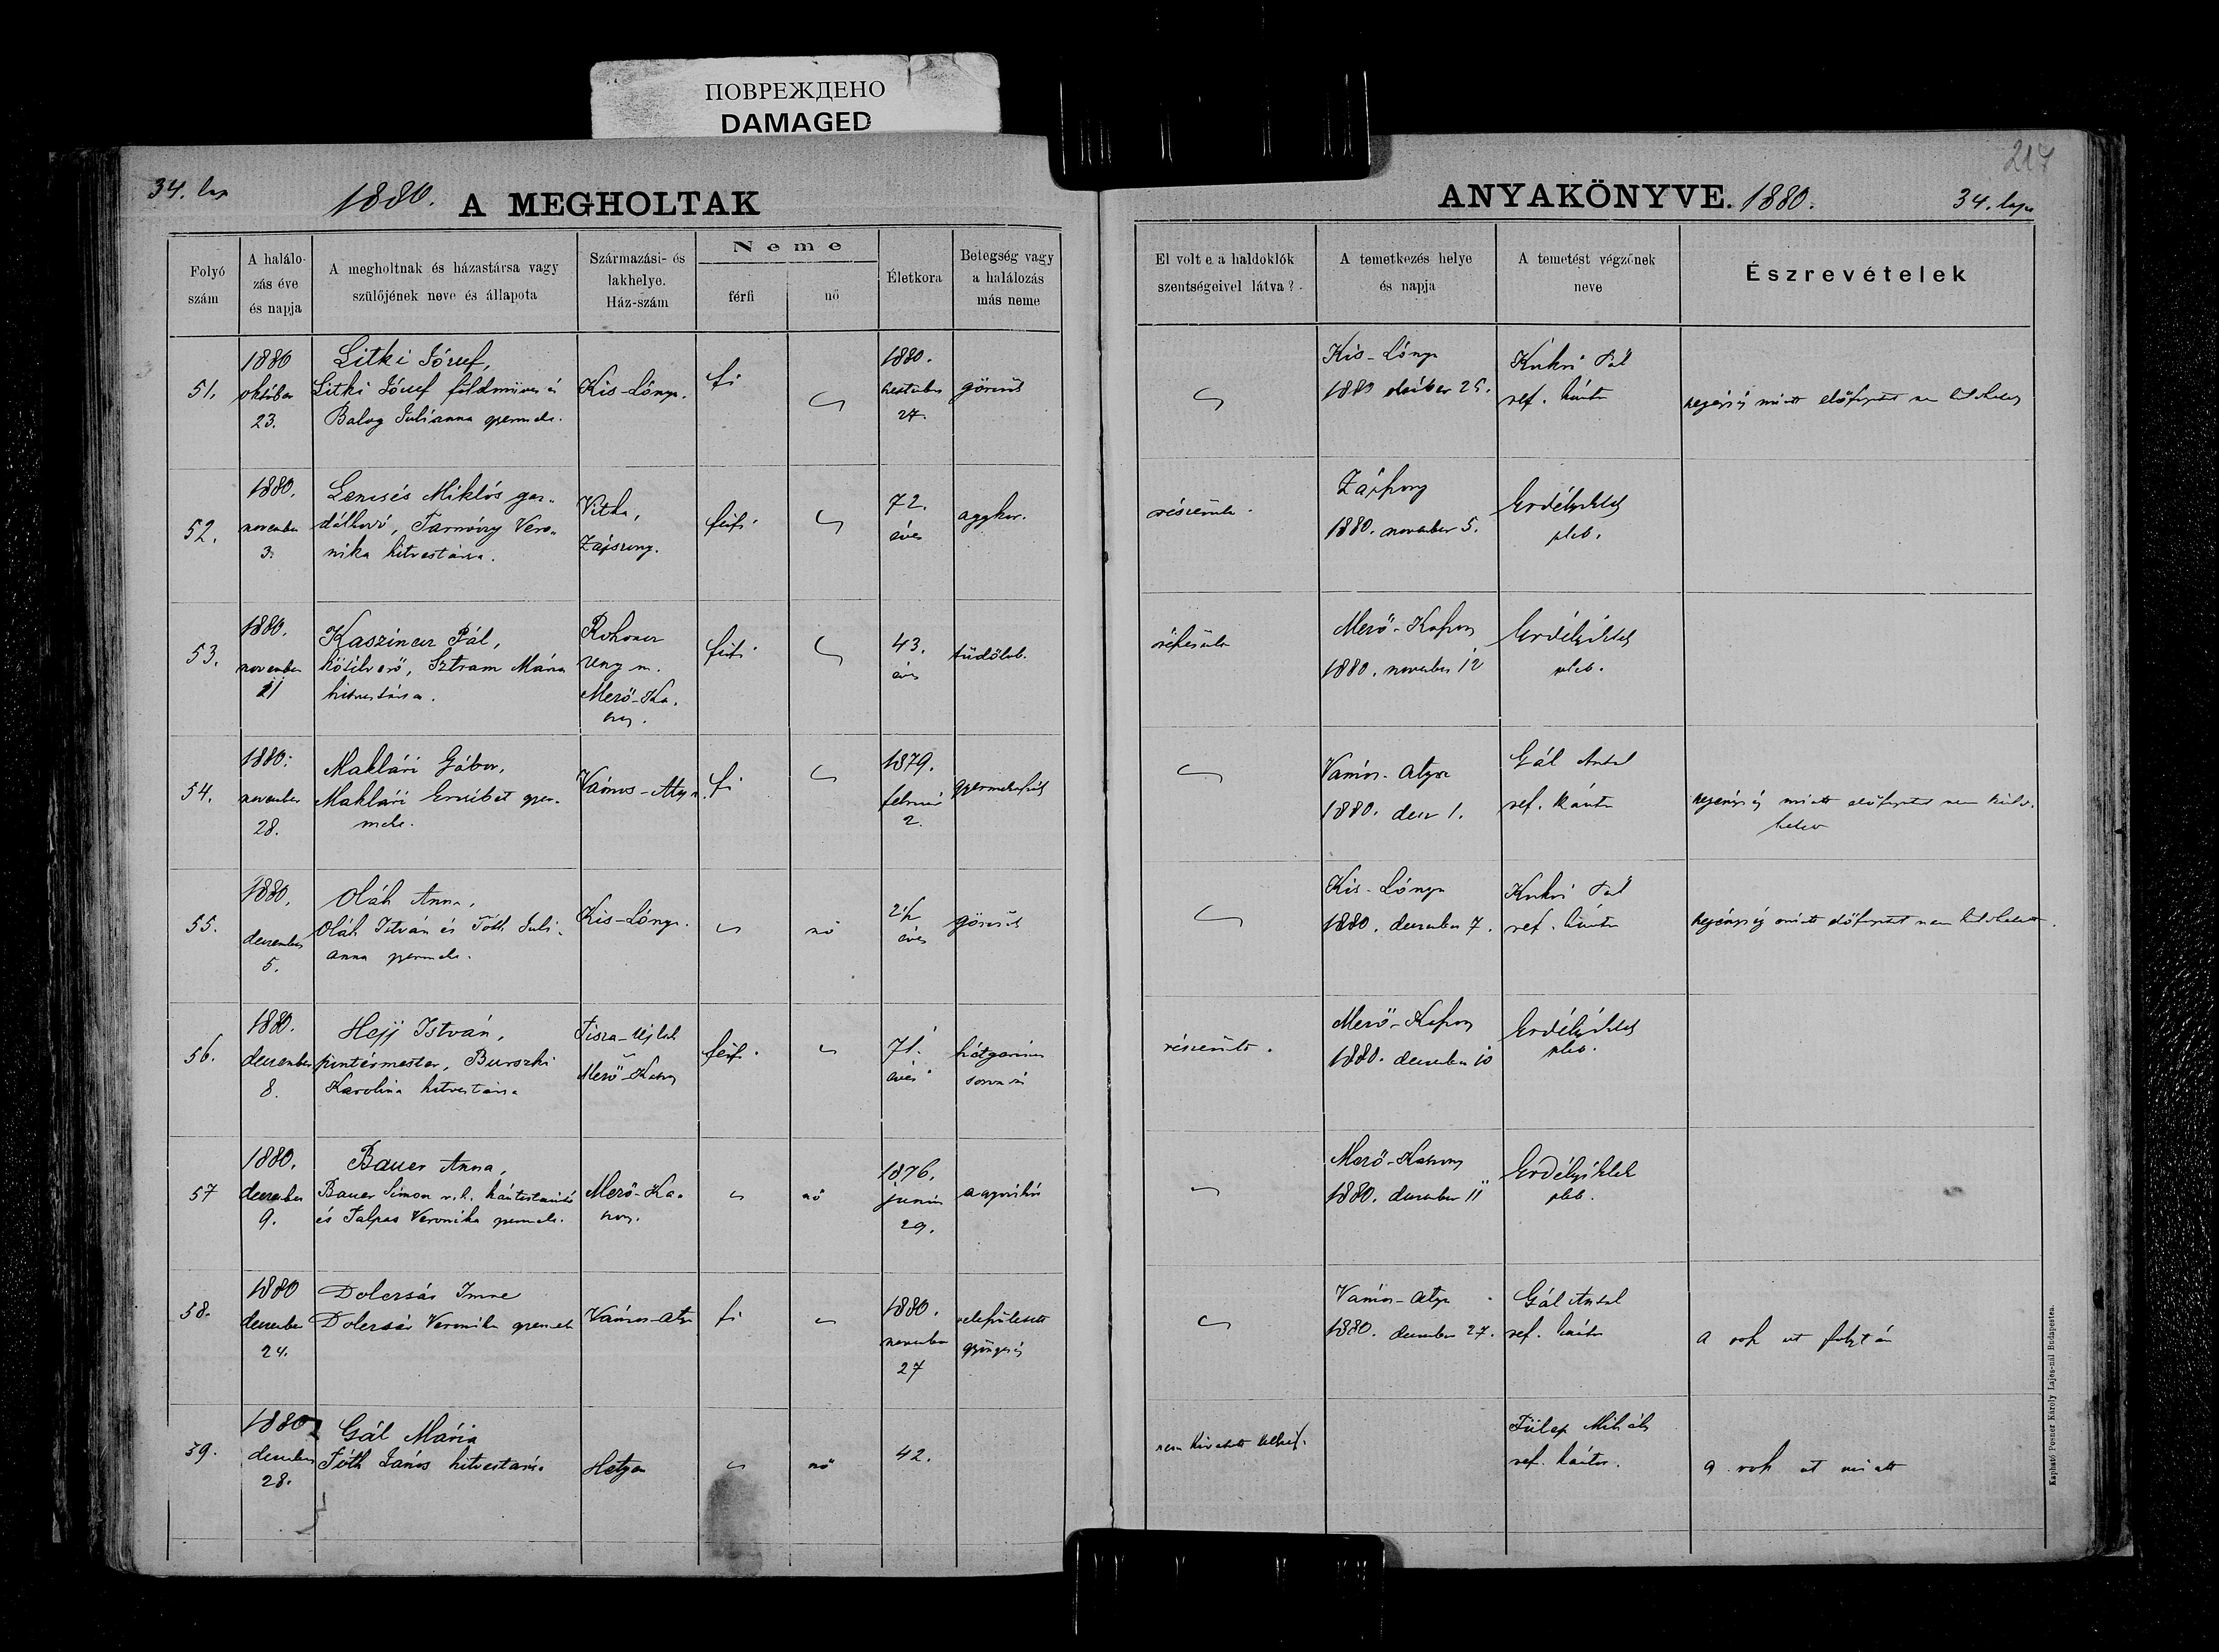 ПОВРЕЖДЕНО
DAMAGED
217
34. lap
1880. A MEGHOLTAK
ANYAKÖNYVE. 1880.
34. lap
Folyó szám
A halálo-zás éve és napja
A megholtnak és házastársa vagy szülőjének neve és állapota
Származási- és lakhelye. Ház-szám
Neme
férfi
nő
Életkora
Betegség vagy a halálozás más neme
El volt e a haldoklók szentségeivel látva?
A temetkezés helye és napja
A temetést végzőnek neve
Észrevételek
51.
1880
október
23.
Litki József,
Litki József földmíves és
Balog Julianna gyermeke.
Kis-Lónya.
fi
1880.
24.
görcsök
Kis-Lónya
1880 október 25.
Kukri Pál
ref. kántor
miatt
52.
1880.
november
3.
Lencsés Miklós gaz-
dálkodó, Tarnóczy Vero-
nika hitvestársa.
Vitka,
férfi
72.
éves
aggkor.
részesült.
Zápszony
1880. november 5.
pleb.
53.
1880.
november
11
Kaszincer Pál,
Sztram Mária
hitvestársa.
Ung m.
Mező-Ka-
szony.
férfi
43.
éves
tüdőlob.
részesült
Mező-Kaszony
1880. november 12
pleb.
54.
1880.
november
28.
Maklári Gábor,
Maklári Erzsébet gyer-
meke.
Vámos-Atya
fi
1879.
február
2.
Vámos-Atya
1880. decz 1.
Gál Antal
ref. kántor
miatt nem
55.
1880.
december
5.
Oláh Anna,
Oláh István és Tóth Juli-
anna gyermeke.
Kis-Lónya.
nő
2 1/2
éves
görcsök
Kis-Lónya
1880. december 7.
Kukri Pál
ref. kántor
miatt nem
56.
1880.
december
8.
Hejj István,
pintérmester, Burszki
Karolina hitvestársa
Tisza-Ujlak
Mező-Kaszony
férfi
71.
éves
hátgerincz
sorvadás
részesült.
Mező-Kaszony
1880. december 10
pleb.
57
1880.
december
9.
Bauer Anna,
Bauer Simon r.k. kántortanító
és Talpas Veronika gyermeke.
Mező-Ka-
szony.
nő
1876.
junius
29.
Mező-Kaszony
1880. december 11
pleb.
58.
1880
december
24.
Dolcsás Imre
Dolcsás Veronika gyermeke
Vámos-Atya
fi
1880.
november
27
veleszületett
gyöngeség
Vámos-Atya
1880. december 27.
Gál Antal
ref. kántor
a rosz ut folytán
59.
1880
december
28.
Gál Mária
Tóth János hitvestársa
Hetyen
nő
42.
nem
Fülep Mihály
ref. kántor.
a rosz ut miatt
Kapható Posner Károly Lajos-nál Budapesten.